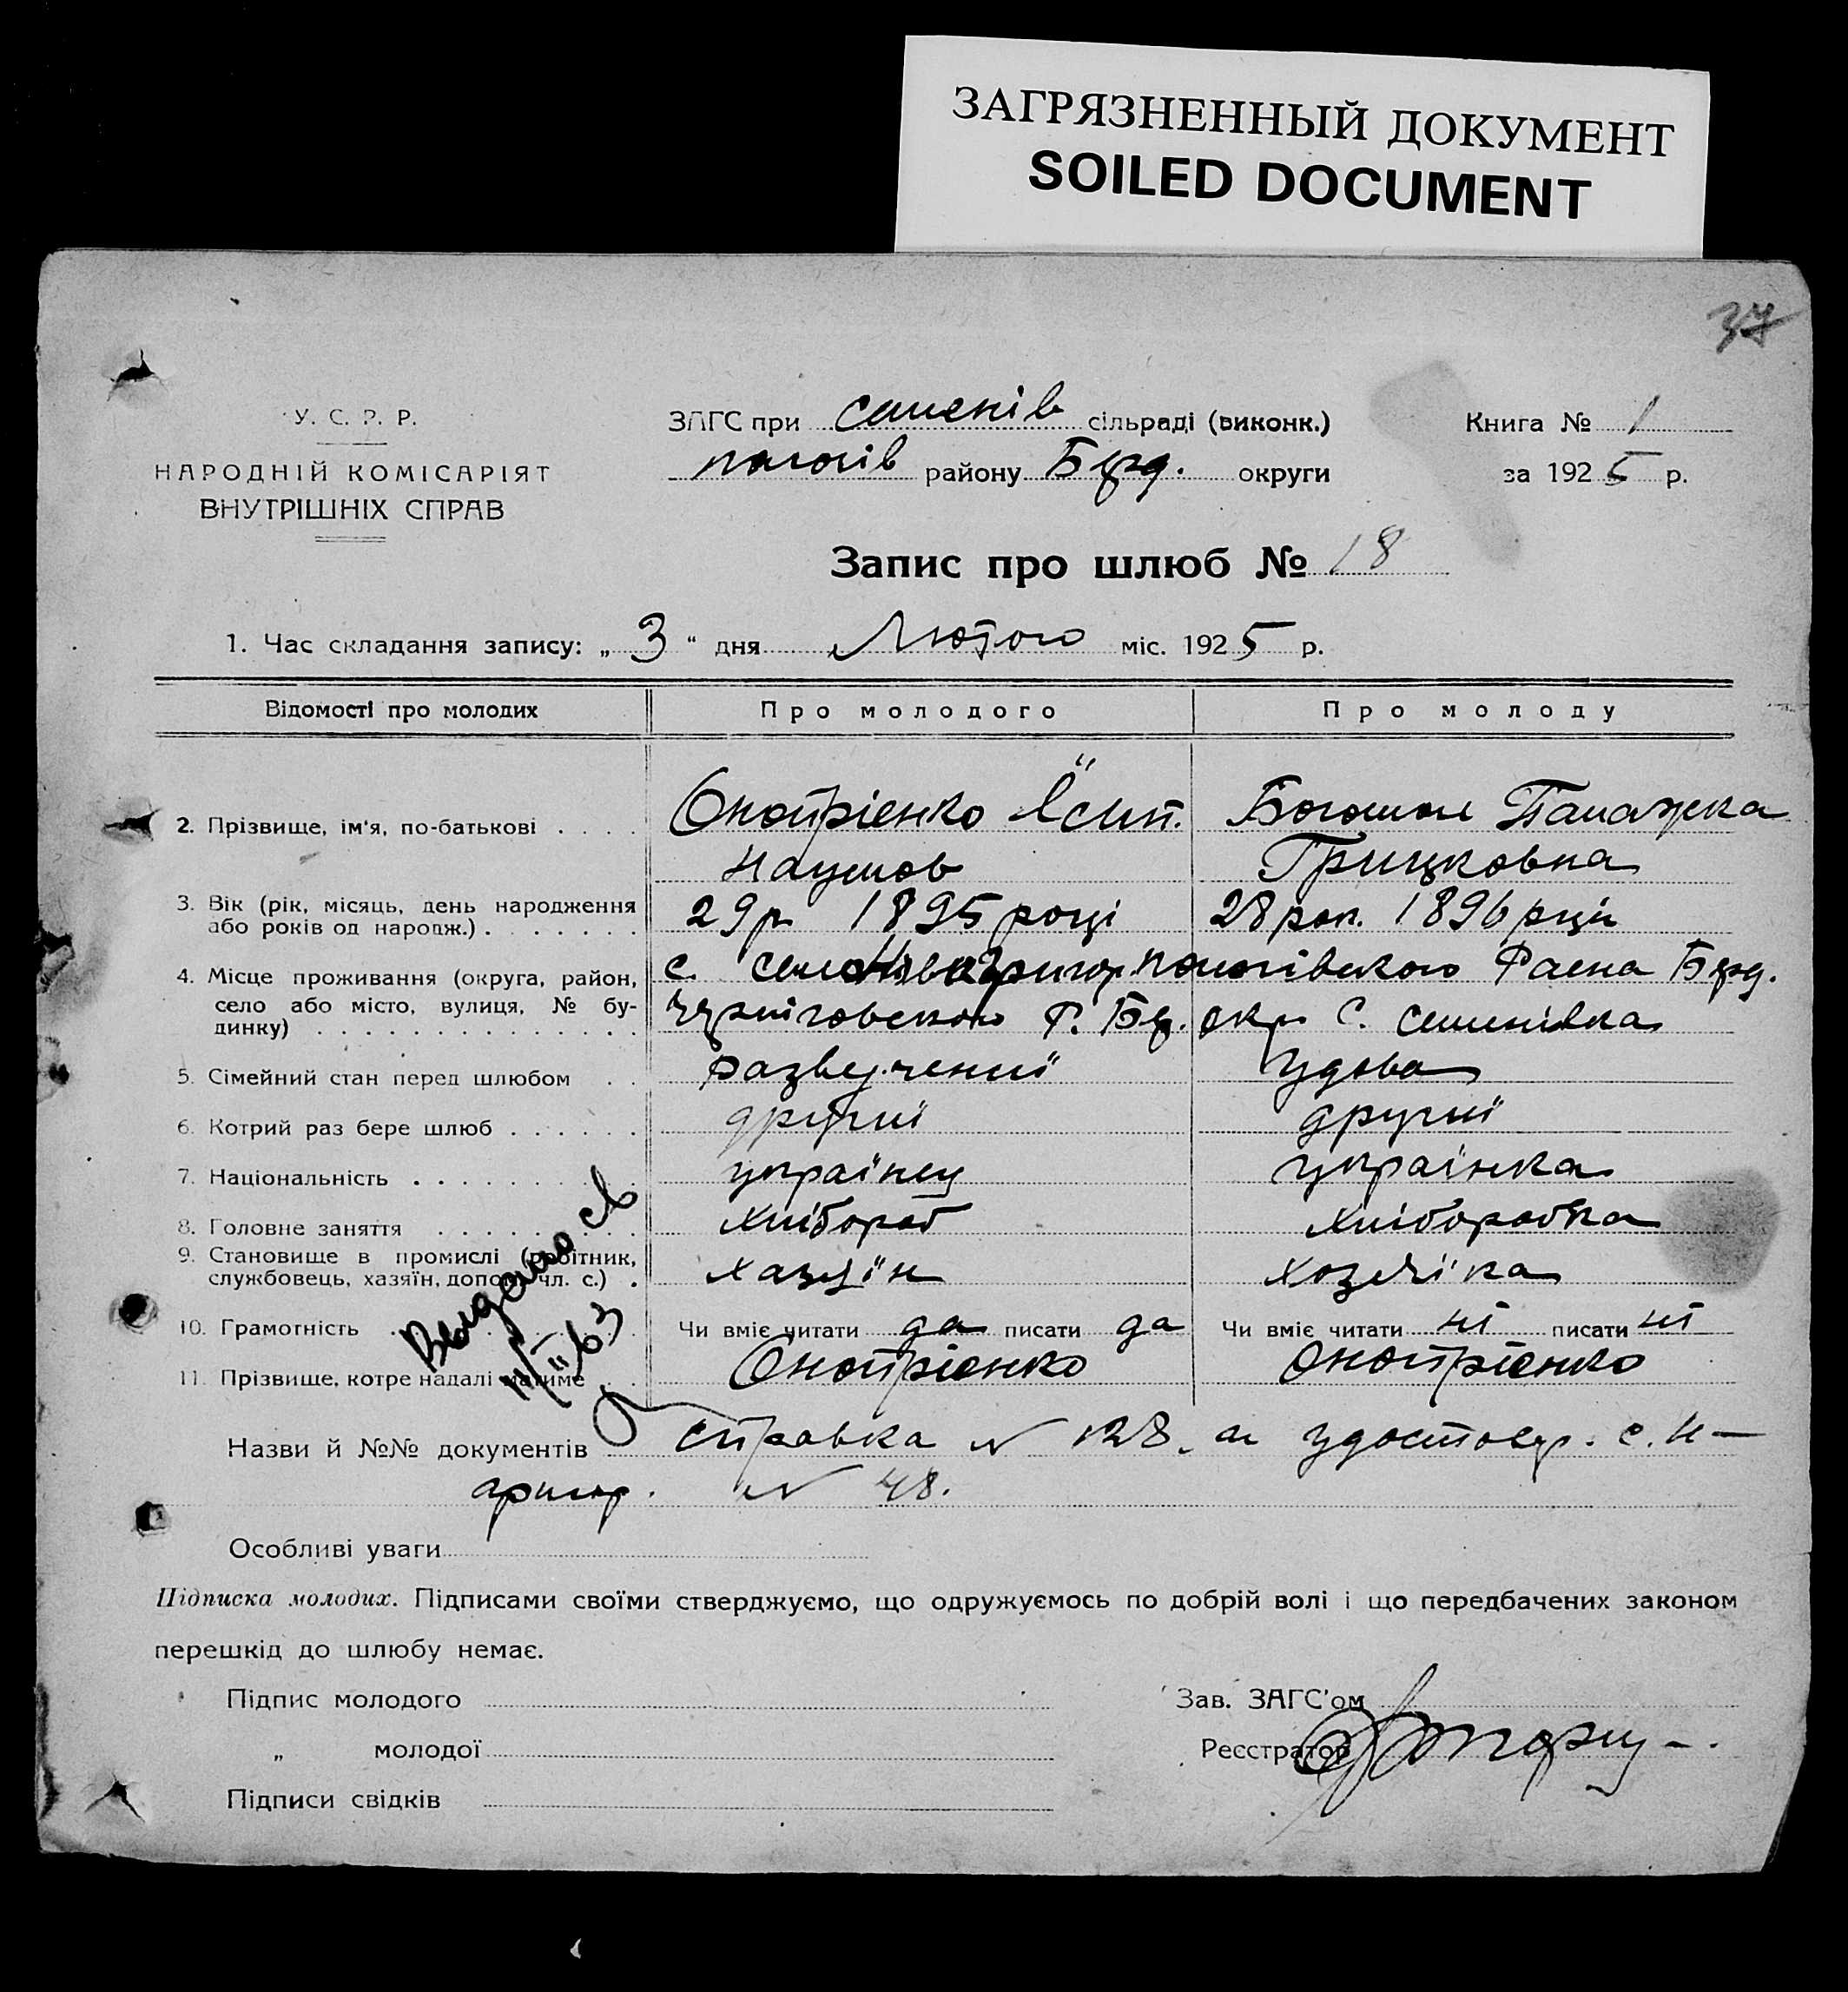 ЗАГРЯЗНЕННЫЙ ДОКУМЕНТ
SOILED DOCUMENT
37
У. С. Р. Р.
НАРОДНІЙ КОМІСАРІЯТ
ВНУТРІШНІХ СПРАВ
ЗАГС при семенів сільраді (виконк.)
пологів району Берд. округи
Книга № 1
за 1925 р.
Запис про шлюб № 18
1. Час складання запису: „ 3 “ дня Лютого міс. 1925 р.
Відомості про молодих Про молодого Про молоду
2. Прізвище, ім'я, по-батькові . . . . Онопрієнко Наумов
Грицковна
3. Вік (рік, місяць, день народження або років од народж.) . . . . . . . 29 р. 1895 році 28 рок. 1896 році
4. Місце проживання (округа, район, село або місто, вулиця, № будинку) с. пологівского Раена Берд.
Р. Бер. окр. с. семенівка
5. Сімейний стан перед шлюбом . . удова
6. Котрий раз бере шлюб . . . . . . другий другий
7. Національність українец українка
8. Головне заняття хлібороб хліборобка
9. Становище в промислі (робітник, службовець, хазяїн, допом. чл. с.) . хазяїн хозяйка
10. Грамотність Чи вміє читати да писати да Чи вміє читати ні писати ні
11. Прізвище, котре надалі матиме . . Онопрієнко Онопрієнко
Видано св
11/II 63
Назви й №№ документів справка № 128. и удостовер. с. Н-
григор. № 48.
Особливі уваги
Підписка молодих. Підписами своїми стверджуємо, що одружуємось по добрій волі і що передбачених законом
перешкід до шлюбу немає.
Підпис молодого
„ молодої
Підписи свідків
Зав. ЗАГС'ом
Реєстратор